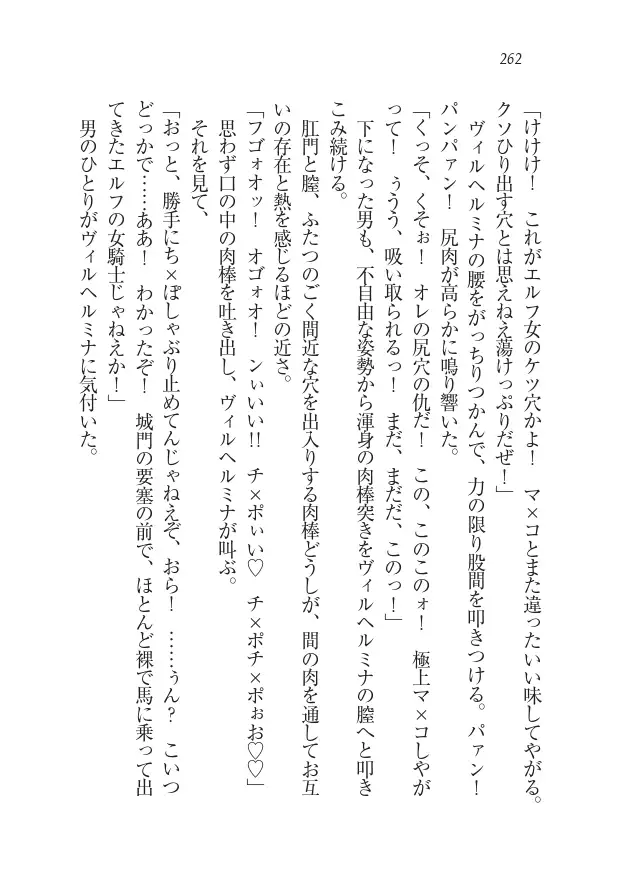 262
「けけけ！　これがエルフ女のケツ穴かよ！　マ×コとまた違ったいい味してやがる。
クソひり出す穴とは思えねえ蕩けっぷりだぜ！」
　ヴィルヘルミナの腰をがっちりつかんで、力の限り股間を叩きつける。パァン！
パンパァン！　尻肉が高らかに鳴り響いた。
「くっそ、くそぉ！　オレの尻穴の仇だ！　この、このこのォ！　極上マ×コしやが
って！　ぅうう、吸い取られるっ！　まだ、まだだ、このっ！」
　下になった男も、不自由な姿勢から渾身の肉棒突きをヴィルヘルミナの膣へと叩き
こみ続ける。
　肛門と膣、ふたつのごく間近な穴を出入りする肉棒どうしが、間の肉を通してお互
いの存在と熱を感じるほどの近さ。
「フゴォオッ！　オゴォオ！　ンぃいい!!　チ×ポぃい♡　チ×ポチ×ポぉお♡♡」
　思わず口の中の肉棒を吐き出し、ヴィルヘルミナが叫ぶ。
　それを見て、
「おっと、勝手にち×ぽしゃぶり止めてんじゃねえぞ、おら！　……ぅん？　こいつ
どっかで……ああ！　わかったぞ！　城門の要塞の前で、ほとんど裸で馬に乗って出
てきたエルフの女騎士じゃねえか！」
　男のひとりがヴィルヘルミナに気付いた。